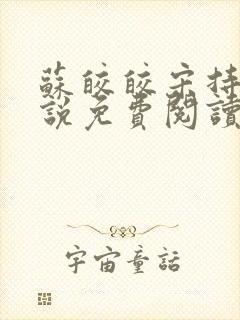 蘇皎皎宋持
說免費閱讀
宇宙童話